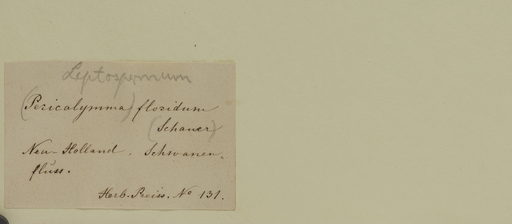 Leptospermum
(Pericalymma) floridum
(Schauer)
Neu-Holland. Schwanen-
fluss.
Herb. Preiss. No 131.